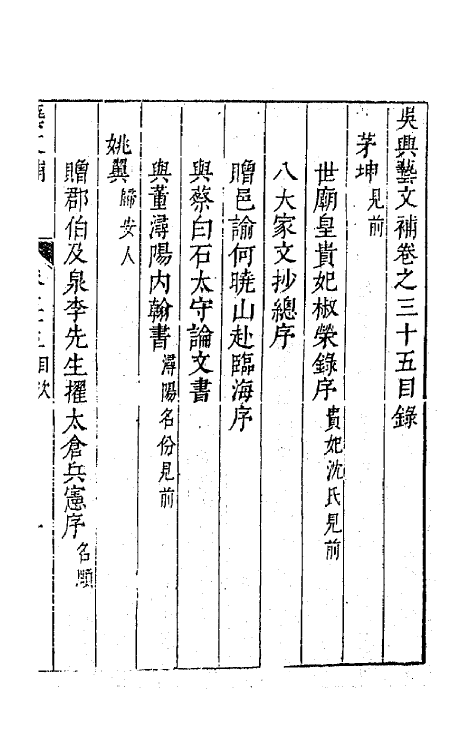 吳興藝文補卷之三十五目錄
茅坤見前
世廟皇貴妃椒榮錄序貴妃沈氏見前
八大家文抄總序
贈邑諭何曉山赴臨海序
與蔡白石太守論文書
與董潯陽內翰書潯陽名份見前
姚翼歸安人
贈郡伯及泉李先生擢太倉兵憲序名頤